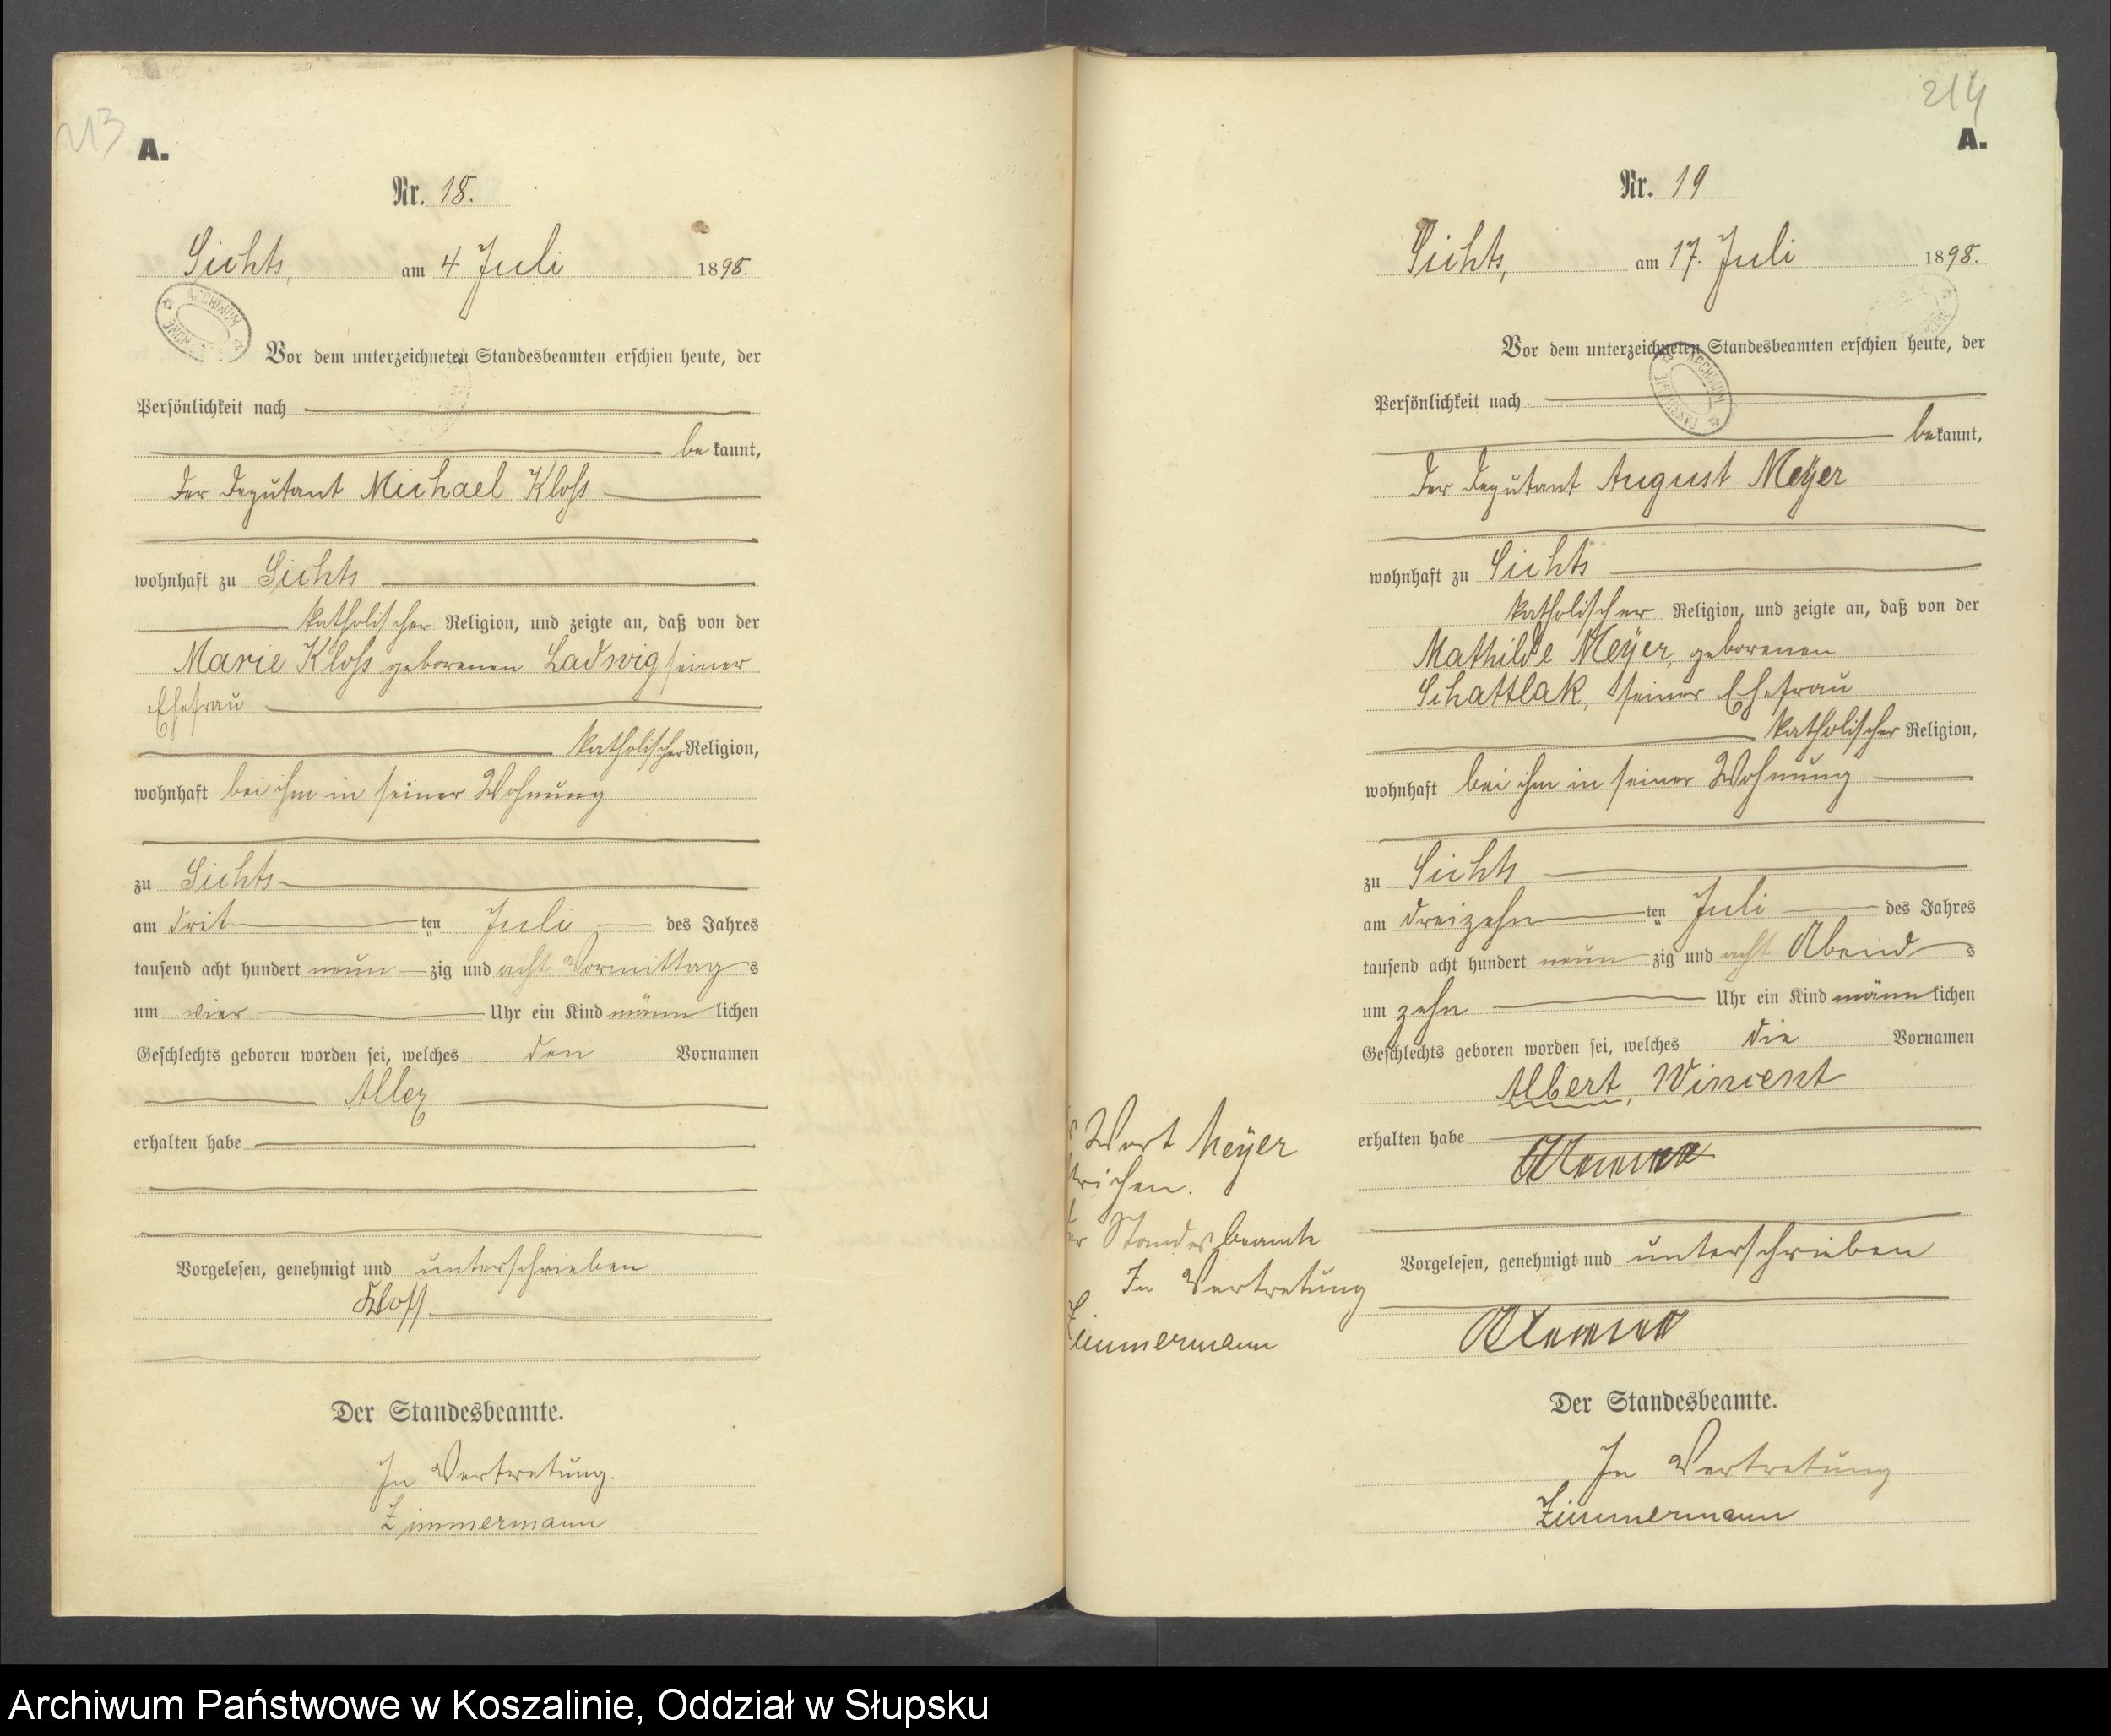 213
A.
Nr. 18.
Sichts, am 4 Juli 1898
Vor dem unterzeichneten Standesbeamten erschien heute, der
Persönlichkeit nach
bekannt,
der Deputant Michael Kloss
wohnhaft zu Sichts
katholischer Religion, und zeigte an, daß von der
Marie Kloss geborenen Ladwig seiner
Ehefrau
katholischer Religion,
wohnhaft bei ihm in seiner Wohnung
zu Sichts
am dritten Juli des Jahres
tausend acht hundert neunzig und acht Vormittags
um vier Uhr ein Kind männlichen
Geschlechts geboren worden sei, welches den Vornamen
Allex
erhalten habe
Vorgelesen, genehmigt und unterschrieben
Kloss
Der Standesbeamte.
In Vertretung.
Zimmermann
214
A.
Nr. 19
Sichts, am 17. Juli 1898.
Vor dem unterzeichneten Standesbeamten erschien heute, der
Persönlichkeit nach
bekannt,
der Deputant August Meÿer
wohnhaft zu Sichts
katholischer Religion, und zeigte an, daß von der
Mathilde Meÿer, geborenen
Schattlak, seiner Ehefrau
katholischer Religion,
wohnhaft bei ihm in seiner Wohnung
zu Sichts
am dreizehnten Juli des Jahres
tausend acht hundert neunzig und acht Abends
um zehn Uhr ein Kind männlichen
Geschlechts geboren worden sei, welches die Vornamen
Albert, Wincent
erhalten habe
Vorgelesen, genehmigt und unterschrieben
Der Standesbeamte.
In Vertretung
Zimmermann
Wort Meÿer
richen.
er Standesbeamte
In Vertretung
Zimmermann
Archiwum Państwowe w Koszalinie, Oddział w Słupsku